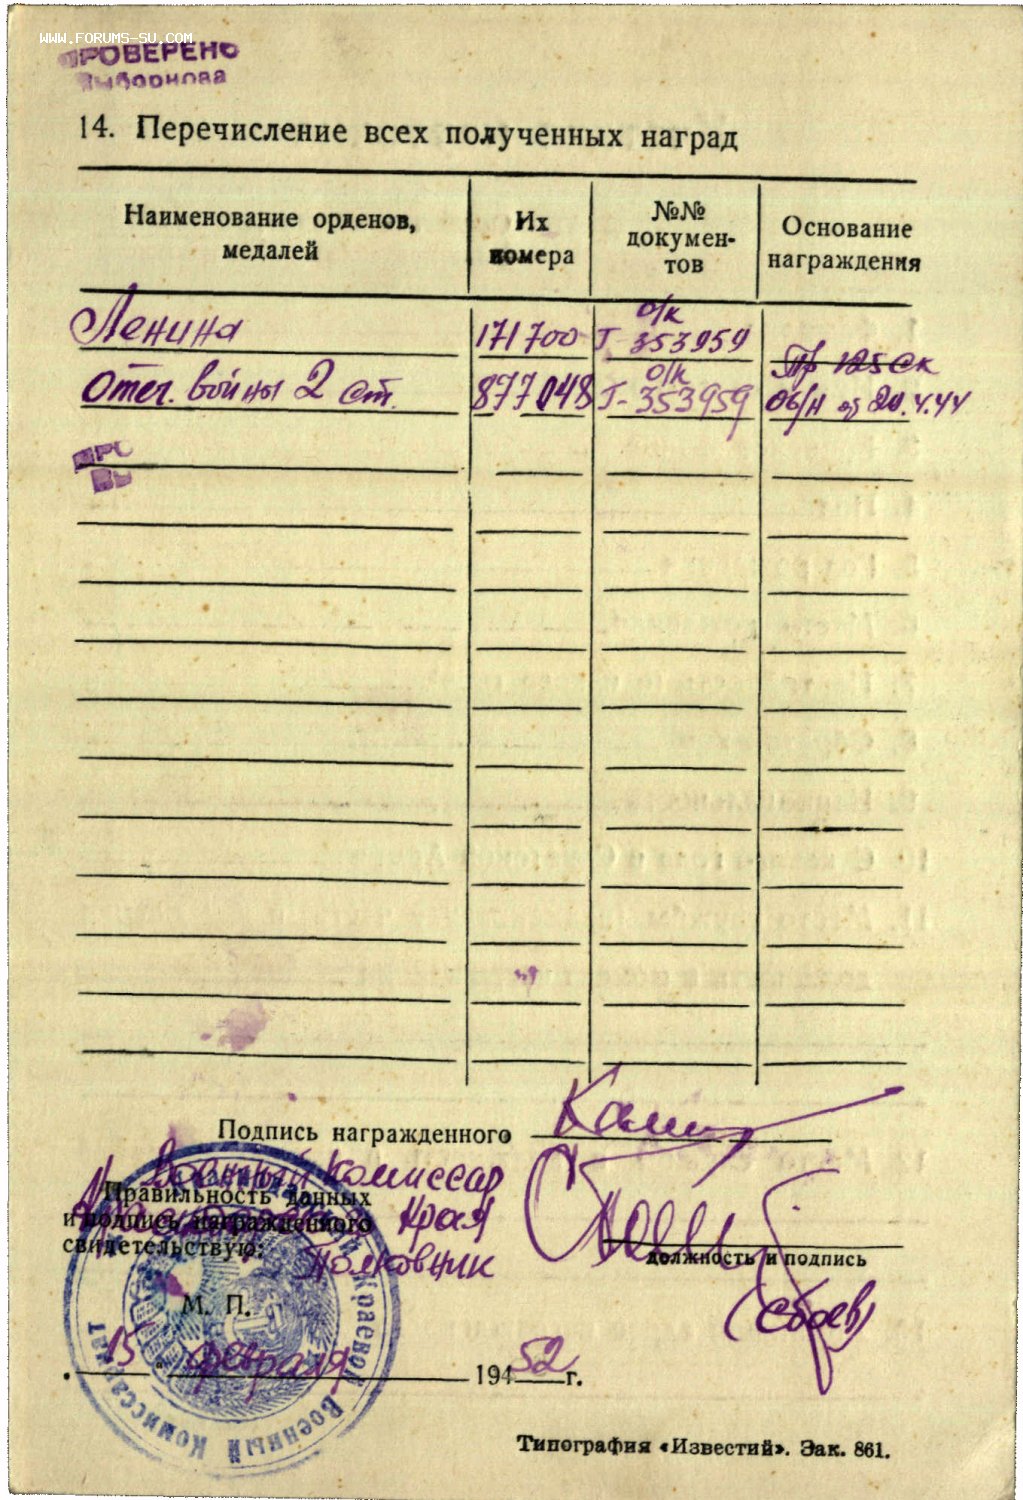 WWW.FORUMS-SU.COM
ПРОВЕРЕНО
Выборнова
14. Перечисление всех полученных наград
Наименование орденов, медалей
Их номера
№№ докумен-тов
Основание награждения
о/к
Ленина 171700 Г-353959
о/к
Пр 125 ск
Отеч. войны 2 ст. 877048 Г-353959 об/н от 20.4.44
ПРО
ВЫ
Подпись награжденного
Военный Комиссар
Правильность данных
Края
и подпись награжденного
свидетельствую:
Полковник
должность и подпись
М. П.
(Сбоев)
15 февраля 1952 г.
Краевой Военный Комиссариат
Типография «Известий». Зак. 861.